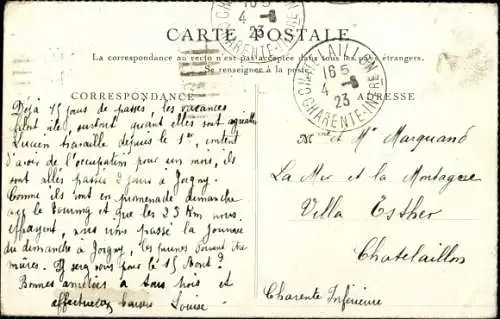 CARTE POSTALE
La correspondance au recto n'est pas acceptée dans tous les pays étrangers.
Se renseigner à la poste
CORRESPONDANCE
ADRESSE
CHATELAILLON
16 5
4 - 8
23
CHARENTE-INFRE
16 5
4 - 8
23
CHARENTE-INFRE
Déjà 15 jours de passés, les vacances
filent vite, surtout quand elles sont agréables
Lucien travaille depuis le 1er, content
d'avoir de l'occupation pour un mois, ils
sont allés passer 2 jours à Joigny.
Comme ils vont en promenade dimanche
avec le Touring et que les 23 Km nous
effrayent, nous irons passer la journée
du dimanche à Joigny, les prunes doivent être
mûres. Y serez vous pour le 15 Août ?
Bonnes amitiés à tous trois et
affectueux baisers Louise
Mme et Mr Marquand
La Mer et la Montagne
Villa Esther
Chatelaillon
Charente Inférieure